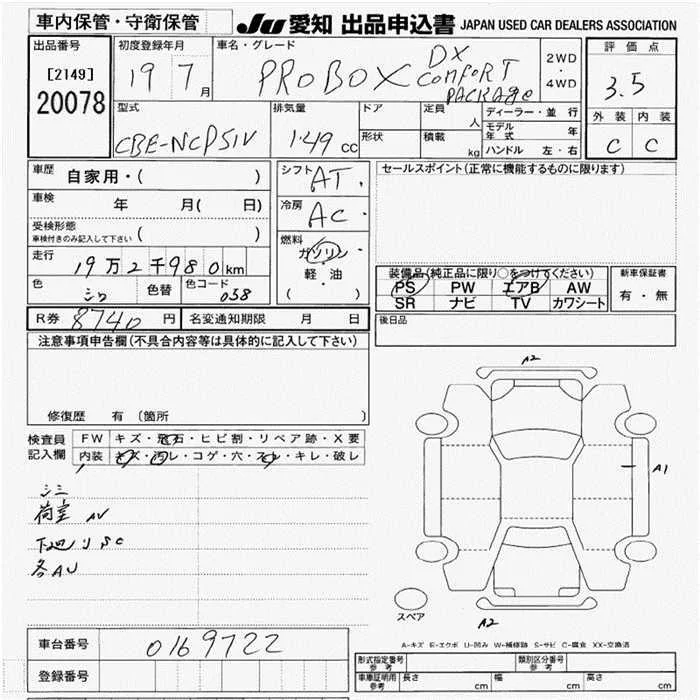 車内保管・守衛保管 JU 愛知 出品申込書 JAPAN USED CAR DEALERS ASSOCIATION
出品番号 初度登録年月 車名・グレード 評価点
[2149] 19 7 月 PROBOX DX COMFORT PACKAGE 2WD ・ 4WD 3.5
20078
型式 排気量 ドア 定員 人 ディーラー・並行 外装 内装
CBE-NCP51V 1.49 cc 形状 積載 kg モデル年式 年 C C
ハンドル 左・右
車歴 自家用・( ) シフト AT セールスポイント(正常に機能するものに限ります)
車検 年 月( 日) 冷房 AC
受検形態 ( )
車検付きのみ記入して下さい
燃料 ガソリン・
軽・油
( )
走行 19万2千980km 装備品(純正品に限り○をつけてください) 新車保証書
色 シロ 色替 色コード 058 PS PW エアB AW 有・無
SR ナビ TV カワシート
R券 8740 円 名変通知期限 月 日 後日品
注意事項申告欄(不具合内容等は具体的に記入して下さい)
修復歴 有 (箇所 )
検査員 FW キズ・飛石・ヒビ割・リペア跡・X要
記入欄 内装 キズ・汚レ・コゲ・穴・スレ・キレ・破レ
A2
A1
シミ
荷室 AV
各AU
スペア
A2
A-キズ E-エクボ U-凹み W-補修跡 S-サビ C-腐食 XX-交換済
車台番号 0169722
登録番号
形式指定番号 参考 類別区分番号 参考
車庫証明用 参考 長さ cm 幅 cm 高さ cm